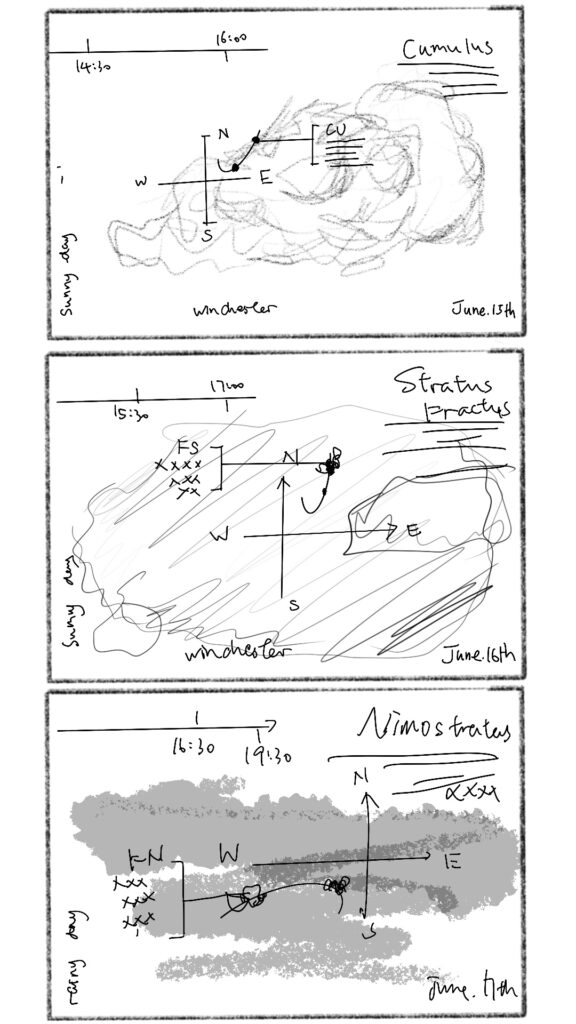 16:00
14:30
Cumulus
N
CU
W
E
S
Sunny day
winchester
June.15th
17:00
15:30
Stratus
Fractus
FS
xxxx
xxx
xx
N
W
E
S
Sunny day
winchester
June.16th
16:30
19:30
Nimostratus
xxxx
N
FN
W
E
xxx
xxx
xxx
S
rainy day
June.17th